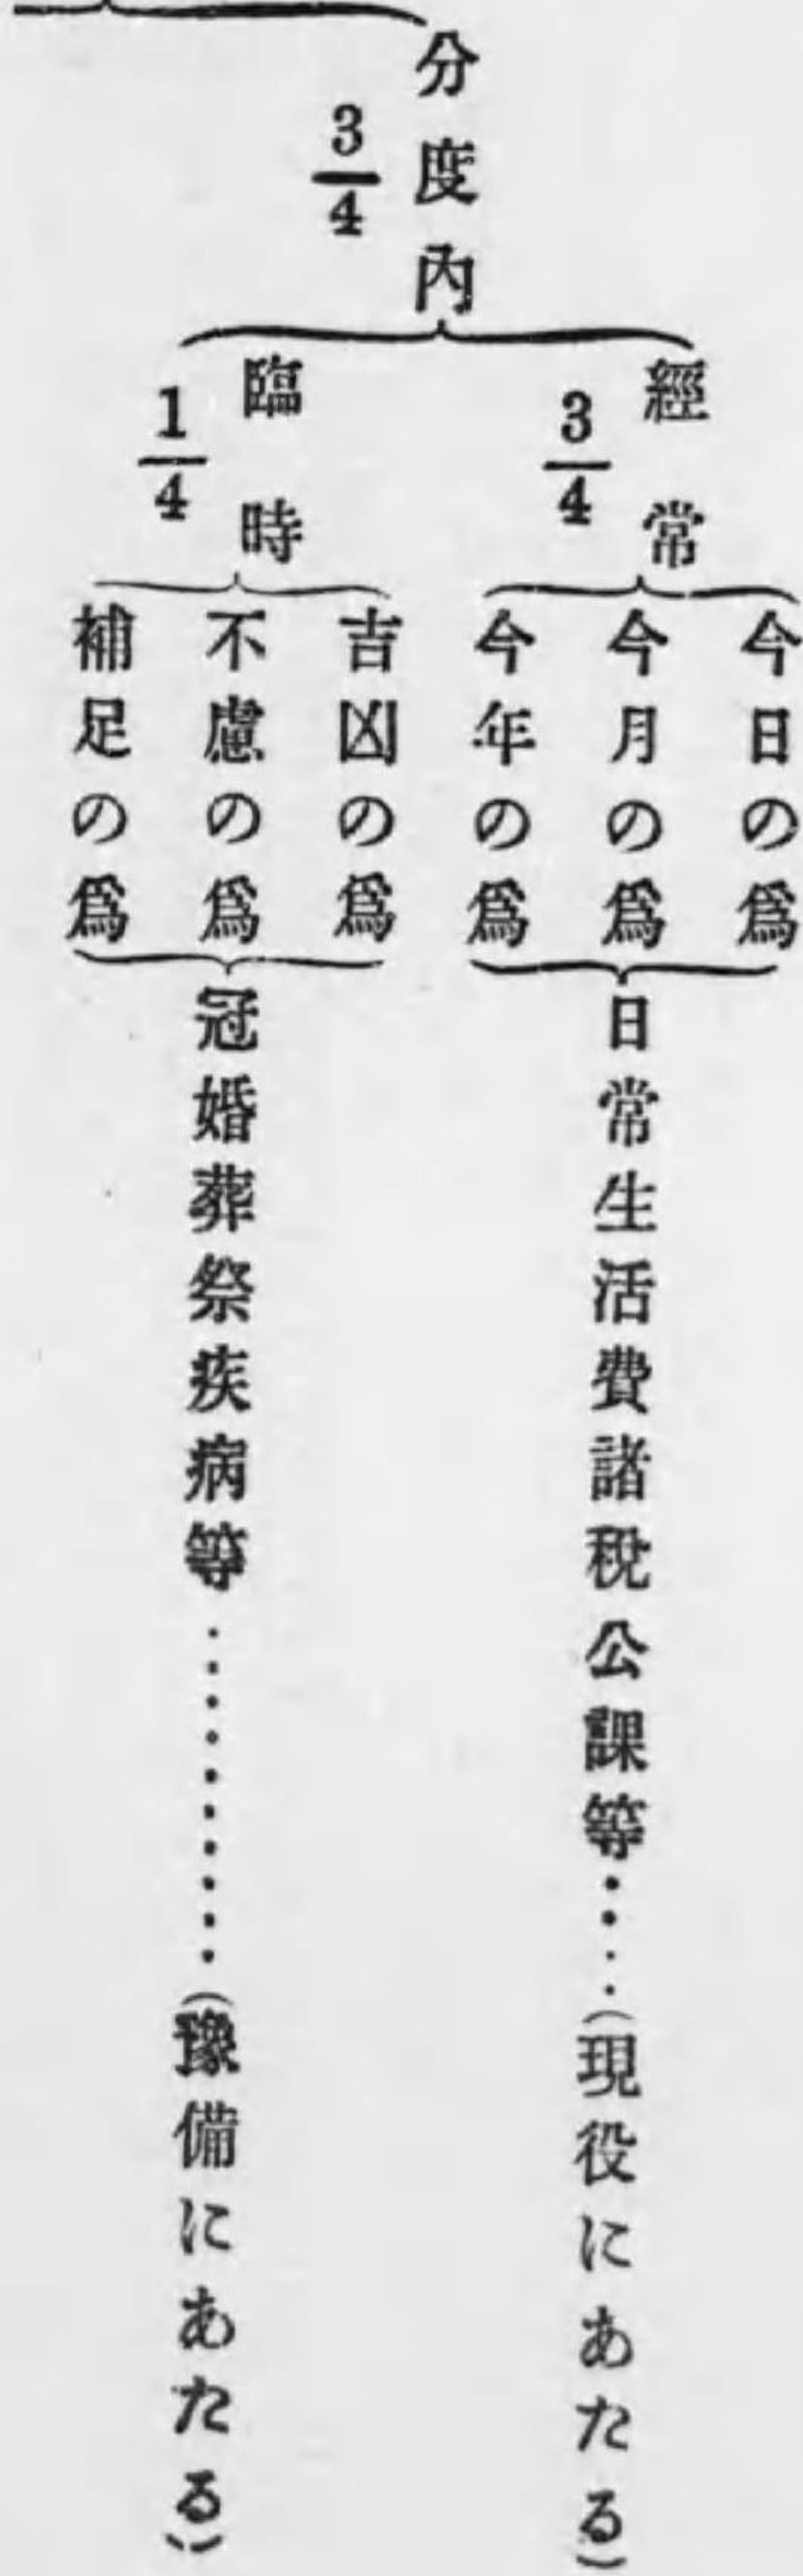 分度內
3/4
經常
3/4
今日の爲
今月の爲
今年の爲
日常生活費諸稅公課等‥‥(現役にあたる)
臨時
1/4
吉凶の爲
不慮の爲
補足の爲
冠婚葬祭疾病等‥‥‥‥‥(豫備にあたる)